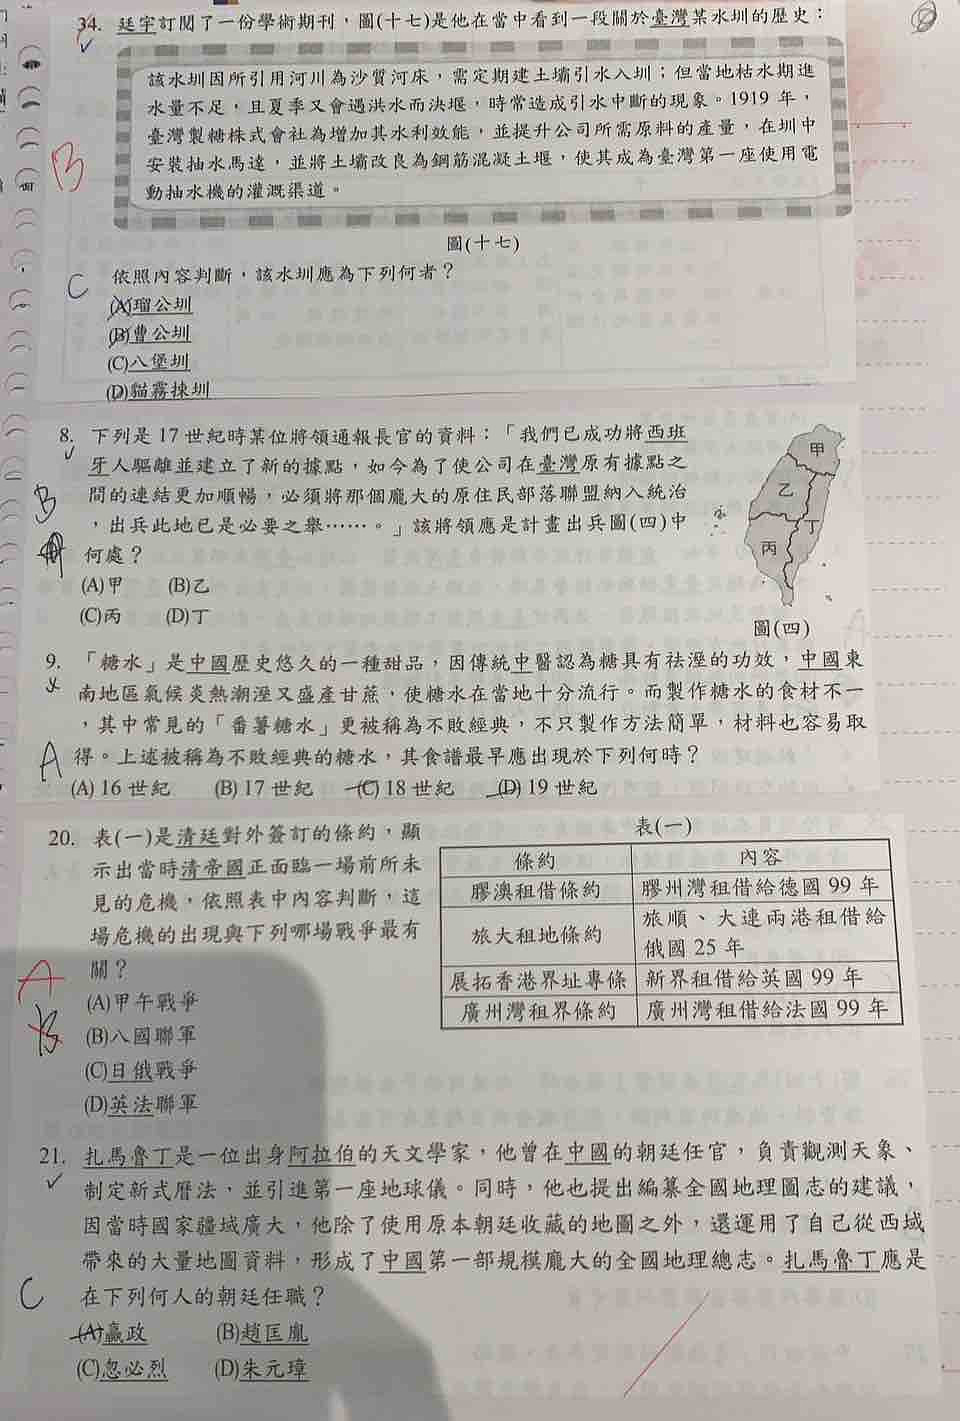 34. 廷宇訂閱了一份學術期刊，圖(十七)是他在當中看到一段關於臺灣某水圳的歷史：
該水圳因所引用河川為沙質河床，需定期建土壩引水入圳；但當地枯水期進
水量不足，且夏季又會遇洪水而決堰，時常造成引水中斷的現象。1919 年，
臺灣製糖株式會社為增加其水利效能，並提升公司所需原料的產量，在圳中
安裝抽水馬達，並將土壩改良為鋼筋混凝土堰，使其成為臺灣第一座使用電
動抽水機的灌溉渠道。
B
圖(十七)
C
依照內容判斷，該水圳應為下列何者？
(A)瑠公圳
(B)曹公圳
(C)八堡圳
(D)貓霧捒圳
8. 下列是 17 世紀時某位將領通報長官的資料：「我們已成功將西班
牙人驅離並建立了新的據點，如今為了使公司在臺灣原有據點之
間的連結更加順暢，必須將那個龐大的原住民部落聯盟納入統治
，出兵此地已是必要之舉……。」該將領應是計畫出兵圖(四)中
何處？
B
(A)甲 (B)乙
(C)丙 (D)丁
甲
乙
丁
丙
圖(四)
9. 「糖水」是中國歷史悠久的一種甜品，因傳統中醫認為糖具有祛溼的功效，中國東
南地區氣候炎熱潮溼又盛產甘蔗，使糖水在當地十分流行。而製作糖水的食材不一
，其中常見的「番薯糖水」更被稱為不敗經典，不只製作方法簡單，材料也容易取
得。上述被稱為不敗經典的糖水，其食譜最早應出現於下列何時？
A
(A) 16 世紀 (B) 17 世紀 (C) 18 世紀 (D) 19 世紀
20. 表(一)是清廷對外簽訂的條約，顯
示出當時清帝國正面臨一場前所未
見的危機，依照表中內容判斷，這
場危機的出現與下列哪場戰爭最有
關？
A
B
(A)甲午戰爭
(B)八國聯軍
(C)日俄戰爭
(D)英法聯軍
表(一)
條約 內容
膠澳租借條約 膠州灣租借給德國 99 年
旅大租地條約 旅順、大連兩港租借給
俄國 25 年
展拓香港界址專條 新界租借給英國 99 年
廣州灣租界條約 廣州灣租借給法國 99 年
21. 扎馬魯丁是一位出身阿拉伯的天文學家，他曾在中國的朝廷任官，負責觀測天象、
制定新式曆法，並引進第一座地球儀。同時，他也提出編纂全國地理圖志的建議，
因當時國家疆域廣大，他除了使用原本朝廷收藏的地圖之外，還運用了自己從西域
帶來的大量地圖資料，形成了中國第一部規模龐大的全國地理總志。扎馬魯丁應是
在下列何人的朝廷任職？
C
(A)嬴政 (B)趙匡胤
(C)忽必烈 (D)朱元璋